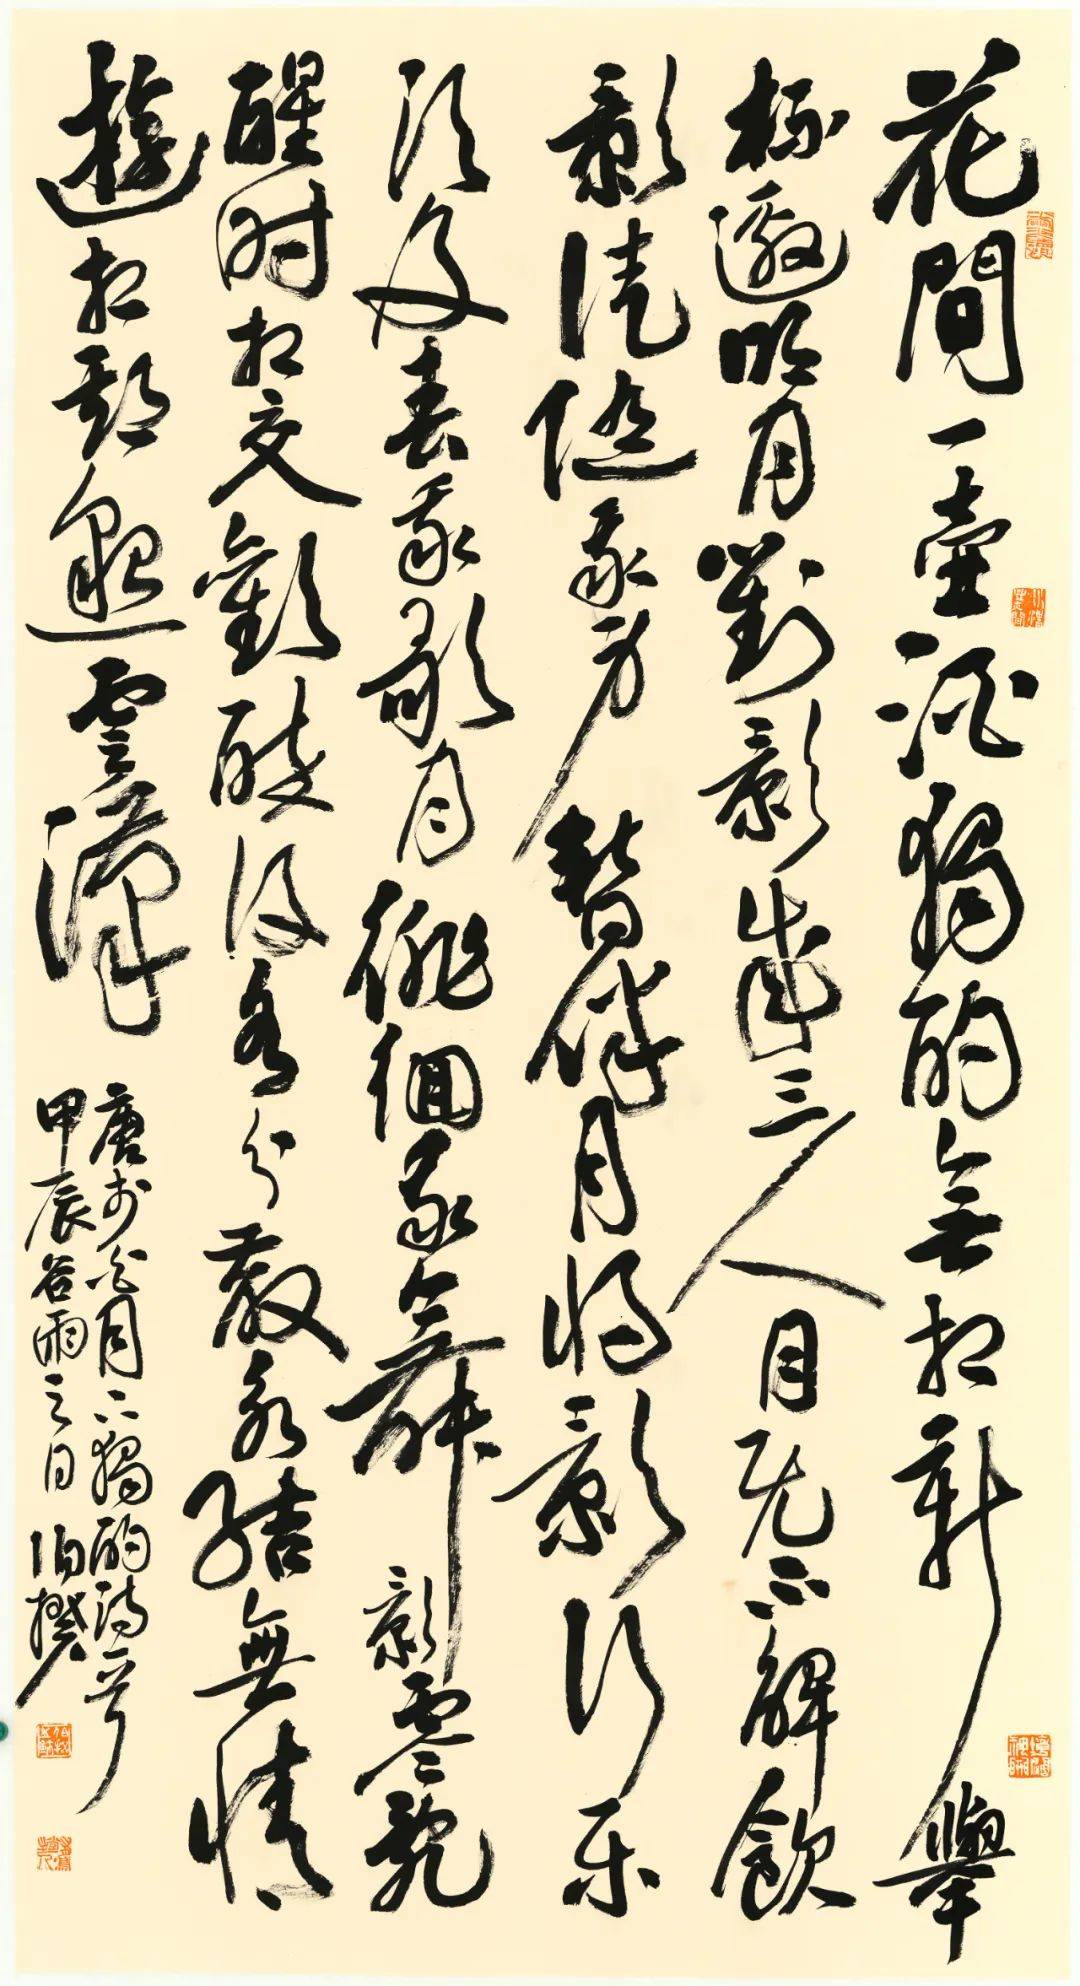 花間一壺酒獨酌無相親舉
杯邀明月對影成三人月既不解飲
影徒隨我身暫伴月將影行乐
須及春我歌月徘徊我舞影零亂
醒时相交歡醉後各分散永結無情
遊相期邈雲漢
唐李白月下獨酌詩一首
甲辰谷雨之日 伯揆